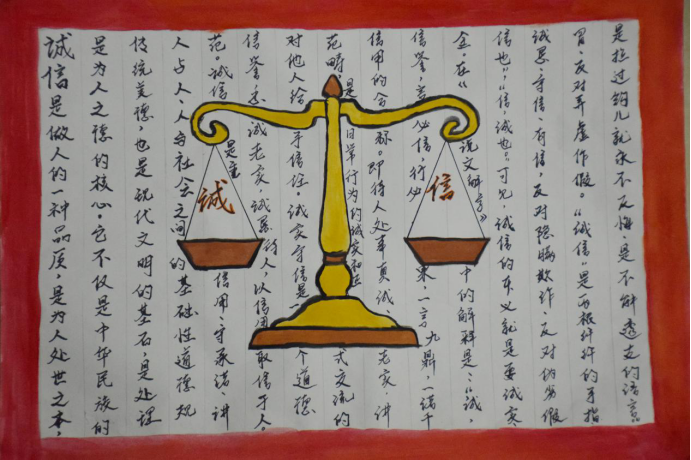 誠信是做人的一种品质,是为人处世之本,
是为人之德的核心。它不仅是中华民族的
传统美德,也是现代文明的基石,是处理
人与人、人与社会之间的基础性道德规
范。诚信是重信用、守承诺、讲
信誉诚老实诚恳待人,以信用取信于人,
对他人给予信任。诚实守信是一个道德
范畴,是日常行为的诚实和正式交流的
信用的合称。即待人处事真诚、老实、讲
信誉,言必信,行必果,一言九鼎,一诺千
金。在《说文解字》中的解释是:“诚,
信也”,“信,诚也”。可见,诚信的本义就是要诚实
诚恳、守信、有信,反对隐瞒欺诈、反对伪劣假
冒、反对弄虚作假。“诚信”是两根纤纤的手指
是拉过钩儿就永不反悔是不解透支的语言。
誠
信